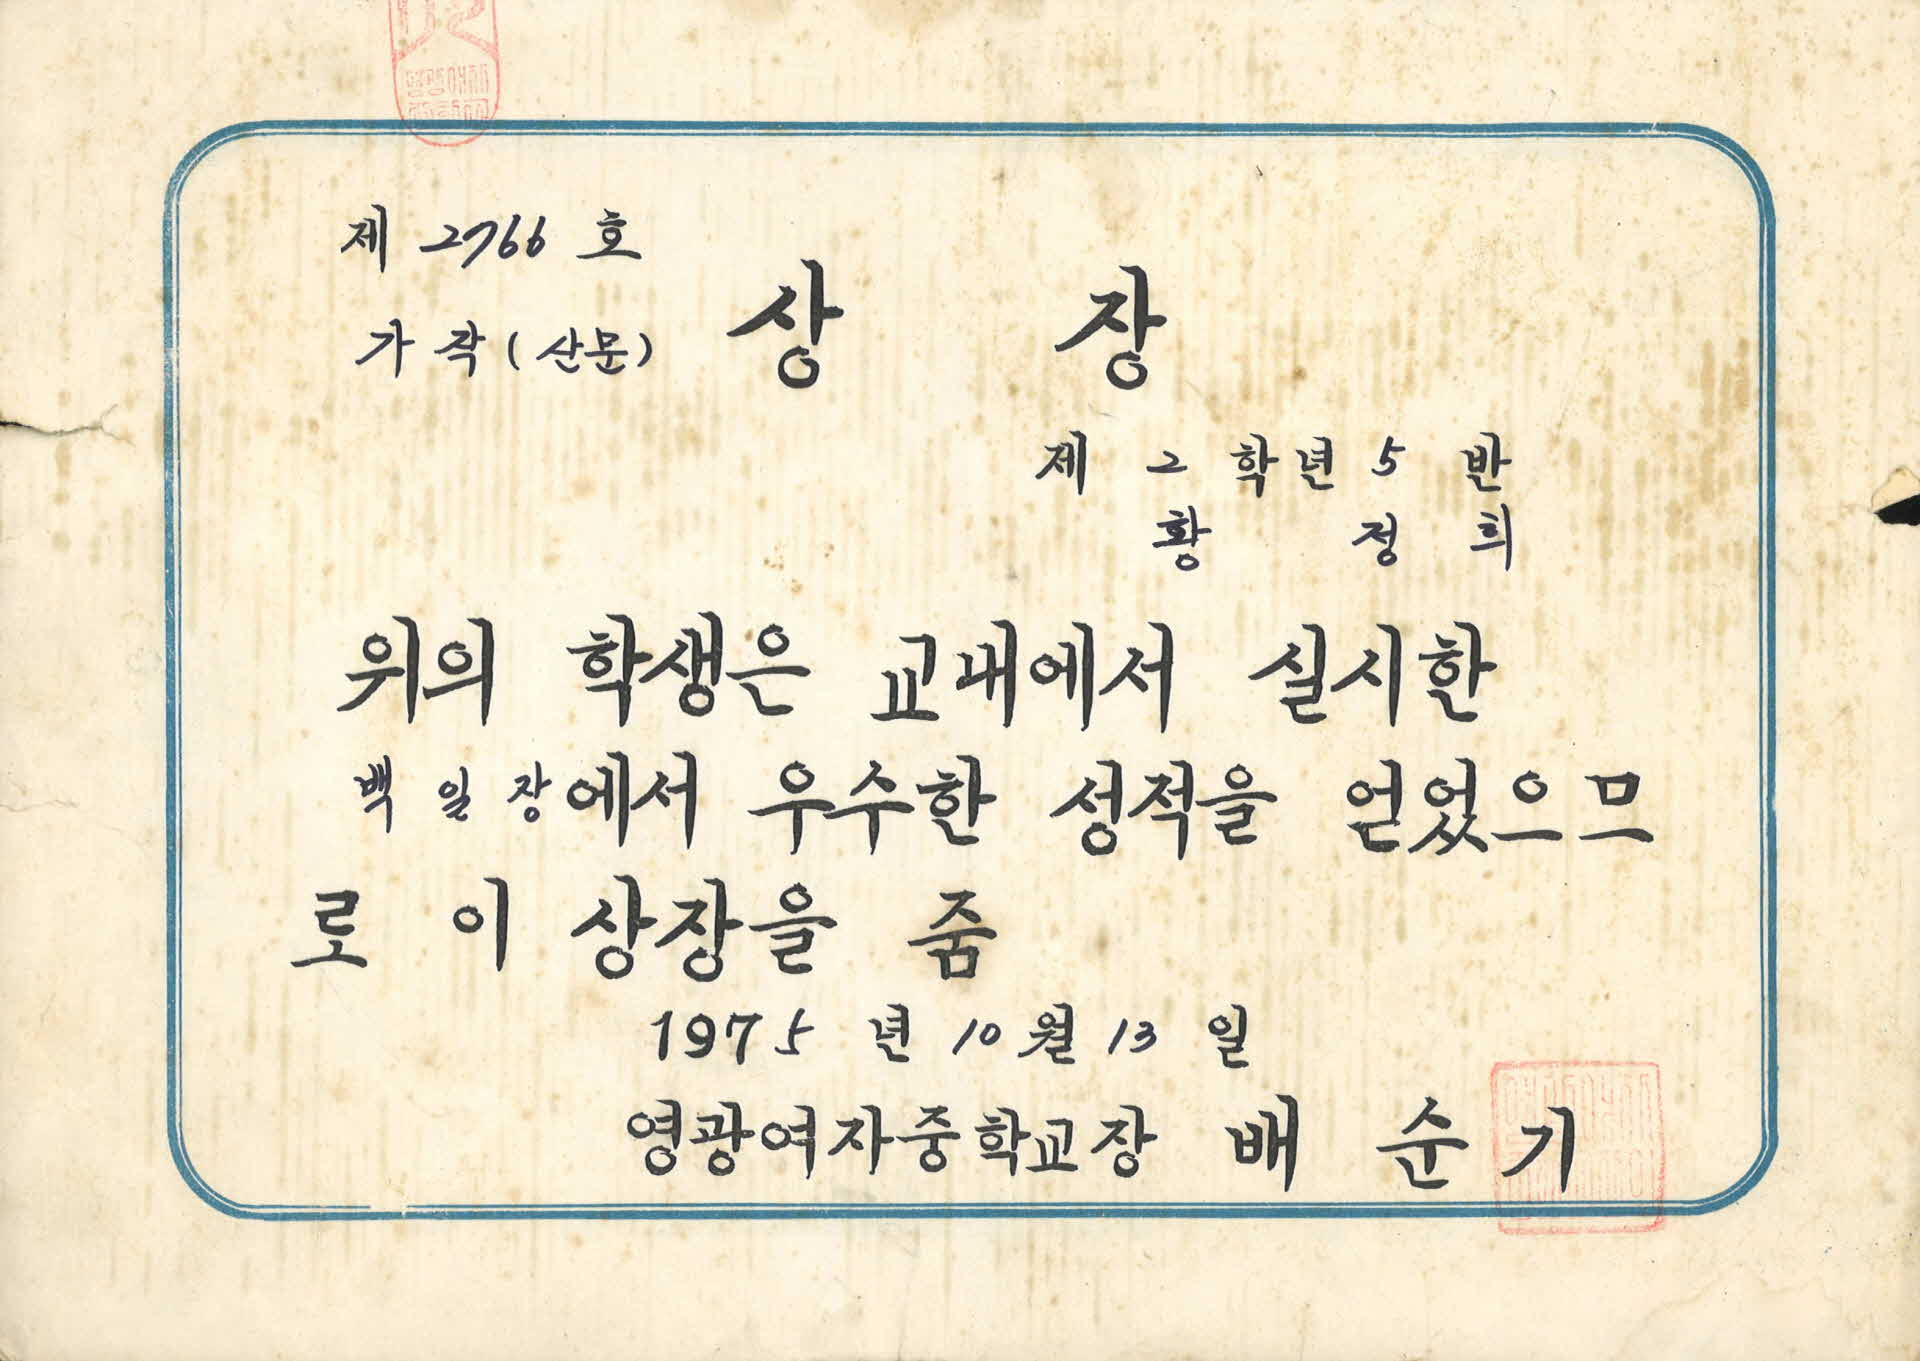 제 2766 호
가작(산문)
상 장
제 2 학년 5 반
황 정 희
위의 학생은 교내에서 실시한
백일장에서 우수한 성적을 얻었으므
로 이 상장을 줌
1975 년 10 월 13 일
영광여자중학교장 배 순 기